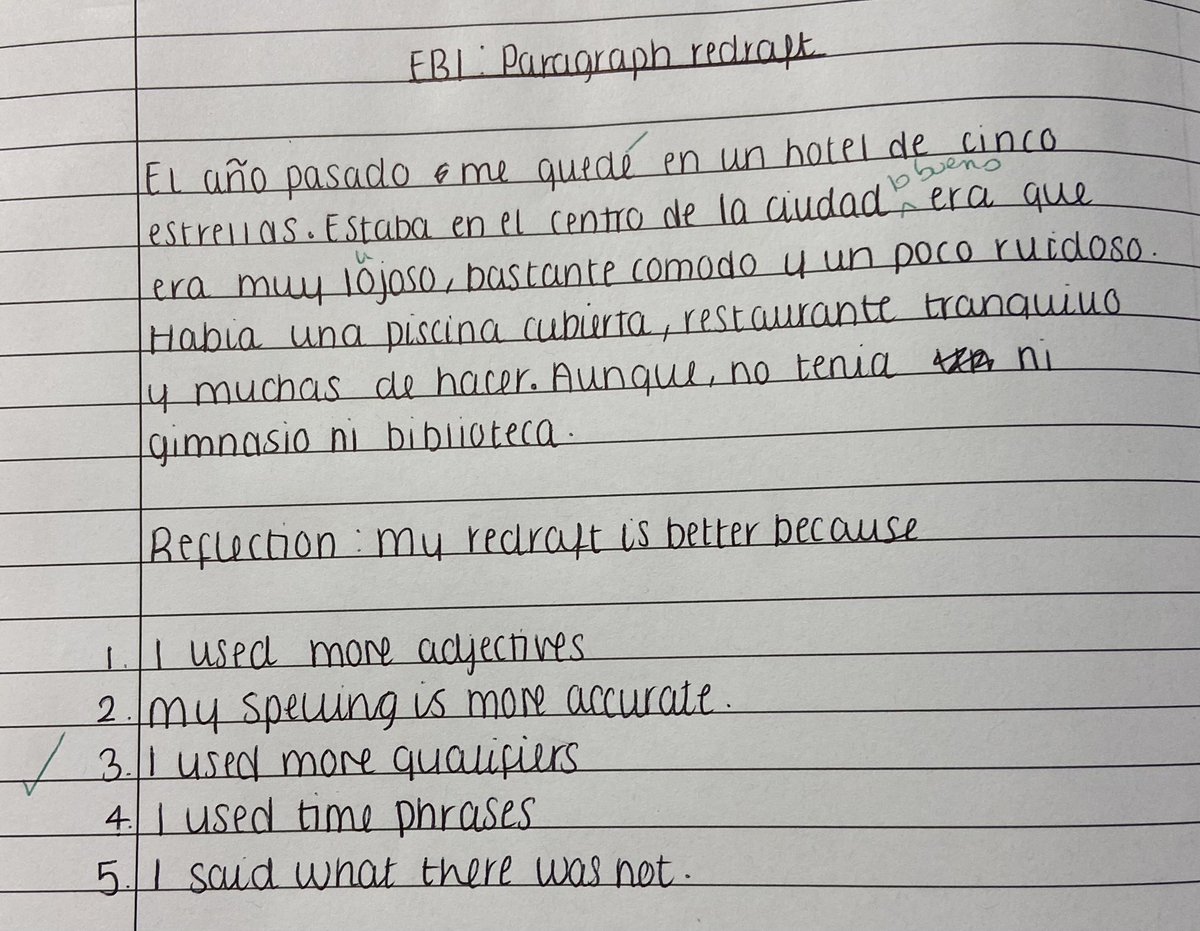 EBI: Paragraph redraft
El año pasado me quedé en un hotel de cinco
lo bueno
estrellas. Estaba en el centro de la ciudad era que
u
era muy lojoso, bastante comodo y un poco ruidoso.
Habia una piscina cubierta, restaurante tranquillo
y muchas de hacer. Aunque, no tenia ni
gimnasio ni biblioteca.
Reflection: my redraft is better because
1. I used more adjectives
2. my spelling is more accurate.
3. I used more qualifiers
4. I used time phrases
5. I said what there was not.